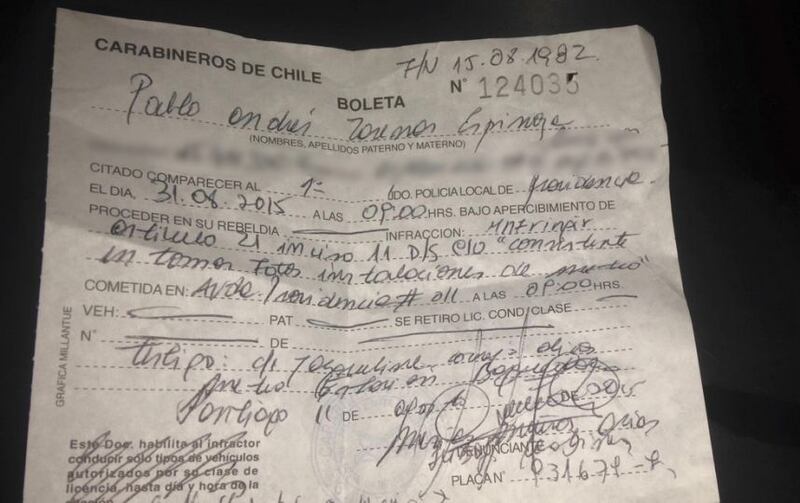 CARABINEROS DE CHILE
F/N 15.08.1982.
Nº 124035
BOLETA
Pablo Andrés Espinoza
(NOMBRES, APELLIDOS PATERNO Y MATERNO)
CITADO COMPARECER AL 1º DO. POLICIA LOCAL DE Providencia
EL DIA 31.08.2015 A LAS 09.00 HRS. BAJO APERCIBIMIENTO DE
PROCEDER EN SU REBELDIA INFRACCION: Infringir
artículo 21 inciso 11 D/S "consistente
in tomar fotos instalaciones de metro"
COMETIDA EN: Avda. Providencia # 011 A LAS 09.00 HRS.
VEH: PAT SE RETIRO LIC. COND/CLASE
Nº DE
Testigo: di
metro Estación Baquedano
Santiago 11 DE agosto DE 2015
DENUNCIANTE
PLACA Nº
GRAFICA MILLANTUE
Este Doc. habilita al infractor
conducir sólo tipos de vehículos
autorizados por su clase de
licencia, hasta día y hora de la